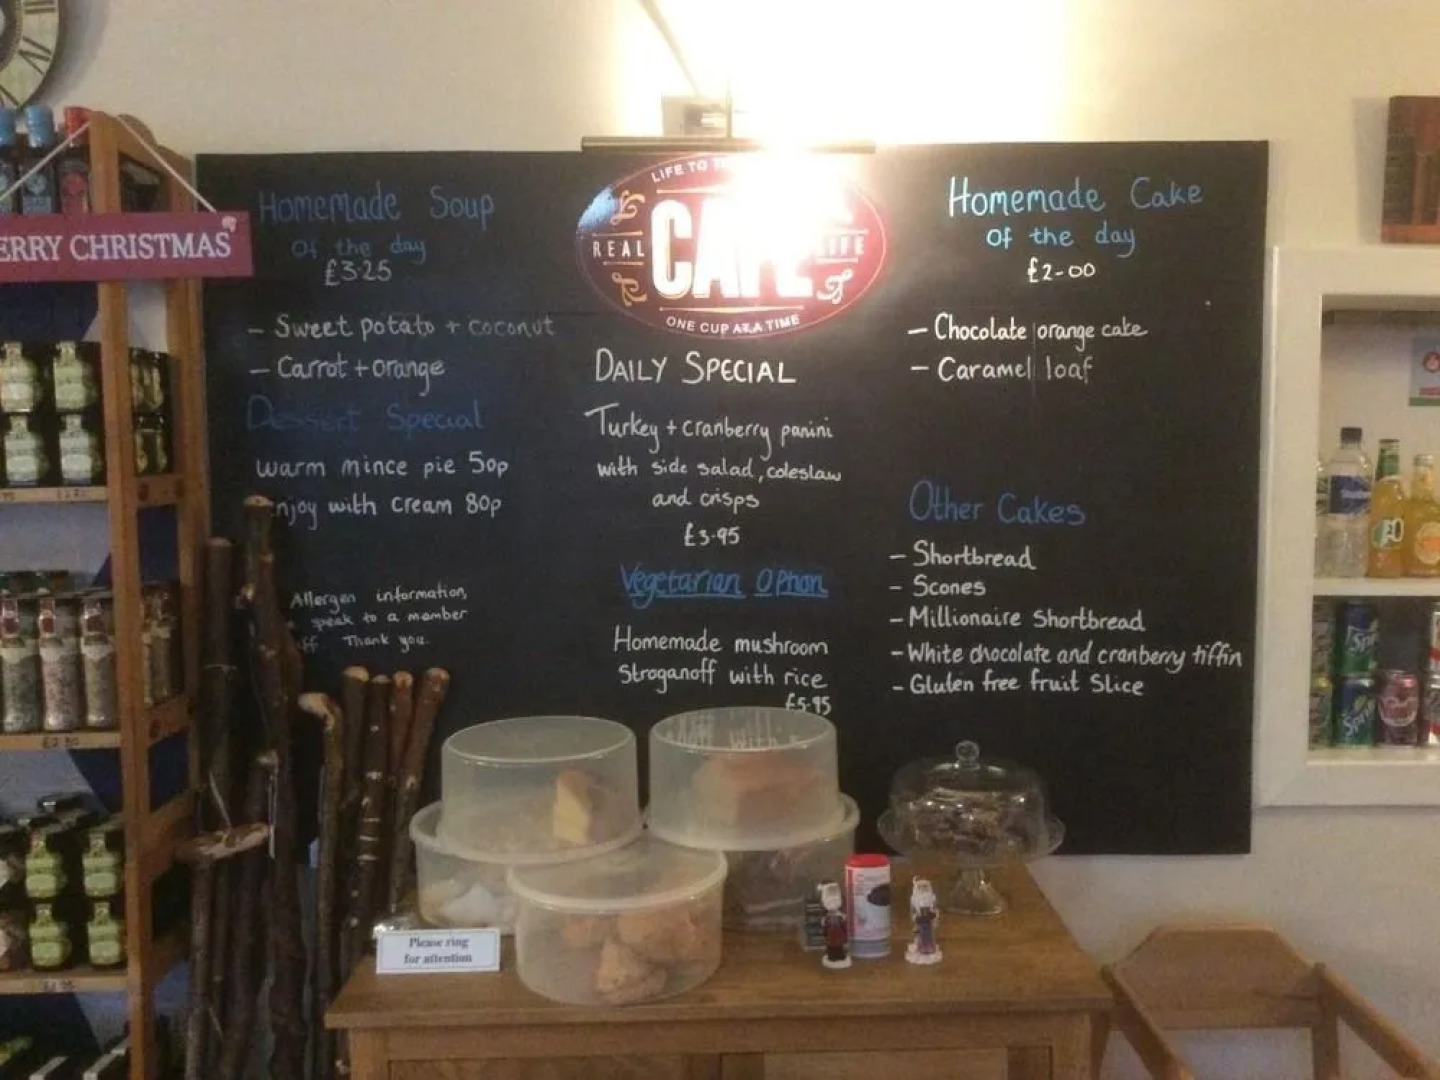 ERRY CHRISTMAS
Homemade Soup
Of the day
£3.25
- Sweet potato + coconut
- Carrot + orange
Dessert Special
warm mince pie 50p
enjoy with cream 80p
Allergen information,
speak to a member
ff. Thank you.
LIFE TO
REAL CAFE LIFE
ONE CUP AT A TIME
DAILY SPECIAL
Turkey + cranberry panini
with side salad, coleslaw
and crisps
£3.95
Vegetarian Option
Homemade mushroom
Stroganoff with rice
£5.95
Homemade Cake
Of the day
£2-00
- Chocolate orange cake
- Caramel loaf
Other Cakes
- Shortbread
- Scones
- Millionaire Shortbread
- White chocolate and cranberry tiffin
- Gluten free fruit Slice
Please ring
for attention